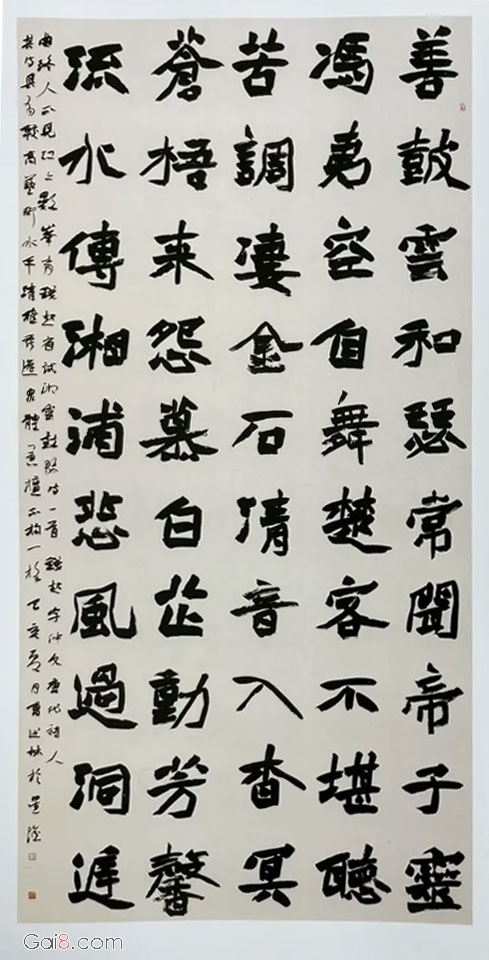 善鼓雲和瑟常聞帝子靈
馮夷空自舞楚客不堪聽
苦調淒金石清音入杳冥
蒼梧来怨慕白芷動芳馨
流水傳湘浦悲風過洞庭
曲終人不見江上數峯青錢起省試湘靈鼓瑟詩一首錢起字仲文唐代詩人
其詩具有較高藝術水平
Gai8.com